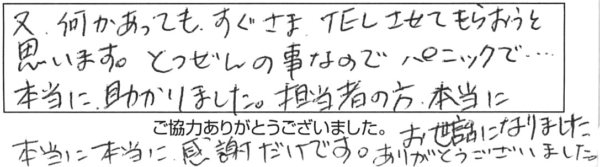 又、何かあっても、すぐさま、TELさせてもらおうと
思います。とつぜんの事なのでパニックで・・・・
本当に、助かりました。担当者の方、本当に
ご協力ありがとうございました。 お世話になりました
本当に本当に、感謝だけです。ありがとうございました。